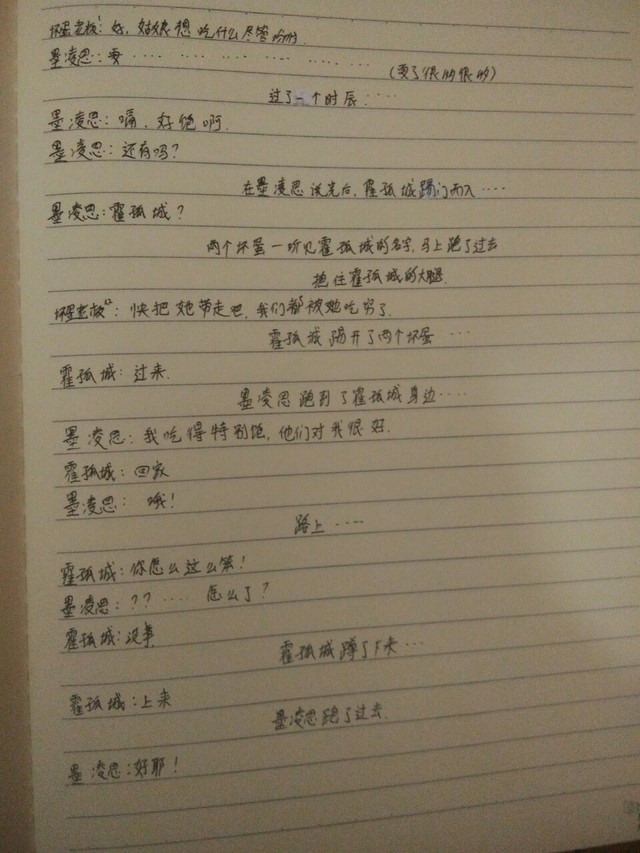 坏蛋老板1:好,姑娘想吃什么尽管吩咐.
墨凌思:要 ‥ ‥‥ ‥‥ ‥‥ ‥‥ ‥‥
(要了很多很多)
过了一个时辰‥‥
墨凌思:嗝,好饱啊.
墨凌思:还有吗?
在墨凌思说完后,霍孤城踢门而入‥‥
墨凌思:霍孤城?
两个坏蛋一听见霍孤城的名字,马上跑了过去
抱住霍孤城的大腿.
坏蛋老板2:快把她带走吧,我们都被她吃穷了.
霍孤城踢开了两个坏蛋‥‥
霍孤城:过来.
墨凌思跑到了霍孤城身边‥‥
墨凌思:我吃得特别饱,他们对我很好.
霍孤城:回家
墨凌思:哦!
路上‥‥
霍孤城:你怎么这么笨!
墨凌思:??‥‥怎么了?
霍孤城:没事
霍孤城蹲了下来‥‥
霍孤城:上来
墨凌思跑了过去.
墨凌思:好耶!